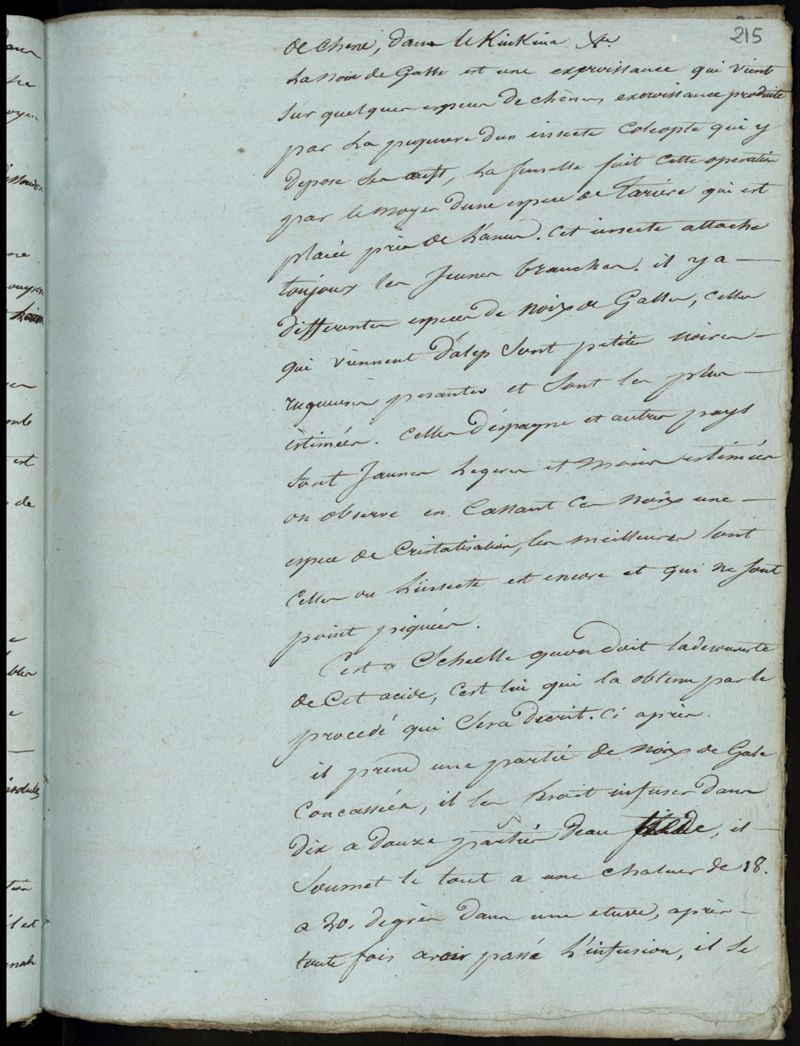 215
de chene, dans le Kinkina &a.
La noix de Galle est une excroissance qui vient
sur quelques especes de chènes, excroissance produite
par la piquure d'un insecte Coleopte qui y
depose ses œufs, la femelle fait cette operation
par le moyen d'une espece de tariere qui est
placée près de l'anus. Cet insecte attache
toujours les jeunes branches. il y a —
differentes especes de noix de Galles, celles
qui viennent d'alep sont petite noires —
rugueuses pesantes et sont les plus —
estimées. Celles d'espagne et autres pays
sont jaunes legeres et moins estimées
on observe en Cassant Ces noix une —
espece de Cristalisation, les meilleures sont
Celles ou l'insecte est encore et qui ne sont
point piquées.
C'est a Scheelle qu'on doit la decouverte
de Cet acide, C'est lui qui la obtenu par le
procedé qui sera decrit. Ci après.
il prend une partie de noix de Gale
Concassées, il les fesoit infuser dans
dix a douze parties d'eau, il —
Soumet le tout a une chaleur de 18.
a 20. degrès dans une etuve, après —
toute fois avoir passé l'infusion, il se